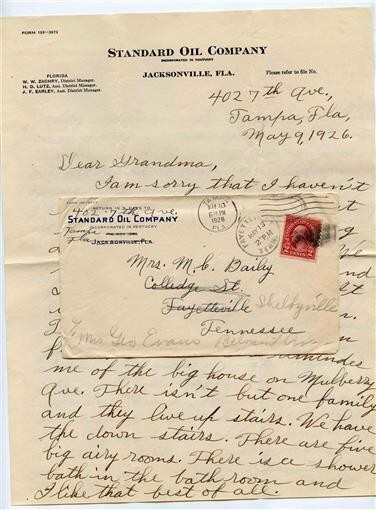 FORM 159-3073
STANDARD OIL COMPANY
INCORPORATED IN KENTUCKY
JACKSONVILLE, FLA.
Please refer to file No.
FLORIDA
W. W. ZACHRY, District Manager.
H. D. LUTZ, Asst. District Manager.
J. F. EARLEY, Asst. District Manager.
402 7th Ave.,
Tampa, Fla,
May 9, 1926.
Dear Grandma,
I am sorry that I haven't
RETURN IN 5 DAYS TO
402 7th Ave.
STANDARD OIL COMPANY
INCORPORATED IN KENTUCKY
Tampa
Fla
JACKSONVILLE, FLA.
TAMPA
MAY 10
6 PM
1926
FLA.
FAYETTEVILLE
MAY 13
2 PM
TENN.
2 CENTS 2
Mrs. M. C. Daily
Colledge St.
Fayetteville Shelbyville
Tennessee
Mrs Geo Evans Belmont Ave
me of the big house on Mulberry
Ave. There isn't but one family
and they live up stairs. We have
the down stairs. There are five
big airy rooms. There is a shower
bath in the bath room and
I like that best of all.